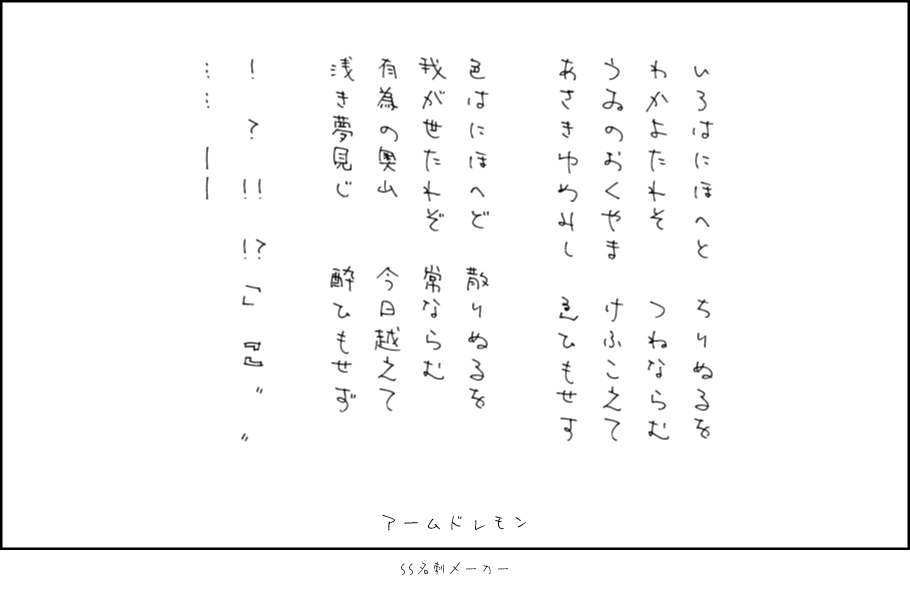 いろはにほへと　ちりぬるを
わかよたれそ　　つねならむ
うゐのおくやま　けふこえて
あさきゆめみし　ゑひもせす
色はにほへど　散りぬるを
我が世たれぞ　常ならむ
有為の奥山　　今日越えて
浅き夢見じ　　酔ひもせず
！　？　!!　!?「」『』〝　〟
……　――
アームドレモン
SS名刺メーカー